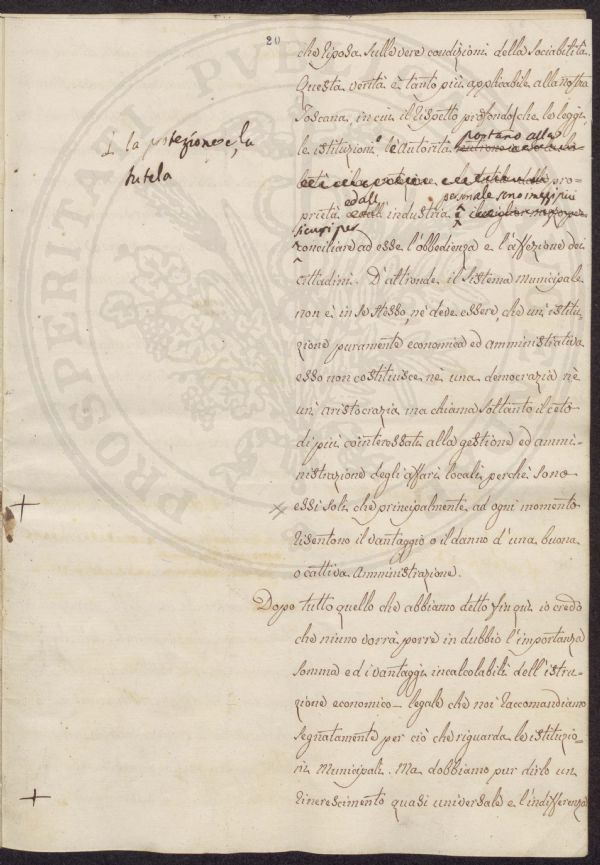 20
che riposa sulle vere condizioni della sociabilità.
Questa verità è tanto più applicabile alla nostra
Toscana, in cui il rispetto profondo che le leggi
le istituzioni e le Autorità portano alla
la protezione e la
tutela
pro-
prietà ed all' industria personale sono mezzi più
sicuri per
conciliare ad esse l'obbedienza e l'affezione dei
Cittadini. D'altronde il sistema Municipale
non è in se stesso, nè deve essere, che un' istitu-
zione puramente economica ed amministrativa
esso non costituisce nè una democrazia nè
un' aristocrazia ma chiama soltanto il ceto
di più cointeressati alla gestione ed ammi-
nistrazione degli affari locali perchè sono
essi soli che principalmente ad ogni momento
risentono il vantaggio o il danno d'una buona
o cattiva Amministrazione.
Dopo tutto quello che abbiamo detto fin quì io credo
che niuno vorrà porre in dubbio l'importanza
somma ed i vantaggi incalcolabili dell'istru-
zione economico-legale che noi raccomandiamo
segnatamente per ciò che riguarda le istituzio=
ni Municipali. Ma dobbiamo pur dirlo un
rincrescimento quasi universale e l'indifferenza
PROSPERITATI PUBL